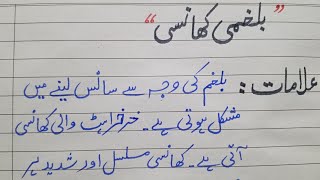 "بلغمی کھانسی"
علامات: بلغم کی وجہ سے سانس لینے میں
مشکل ہوتی ہے۔ خرخراہٹ والی کھانسی
آتی ہے۔ کھانسی مسلسل اور شدید